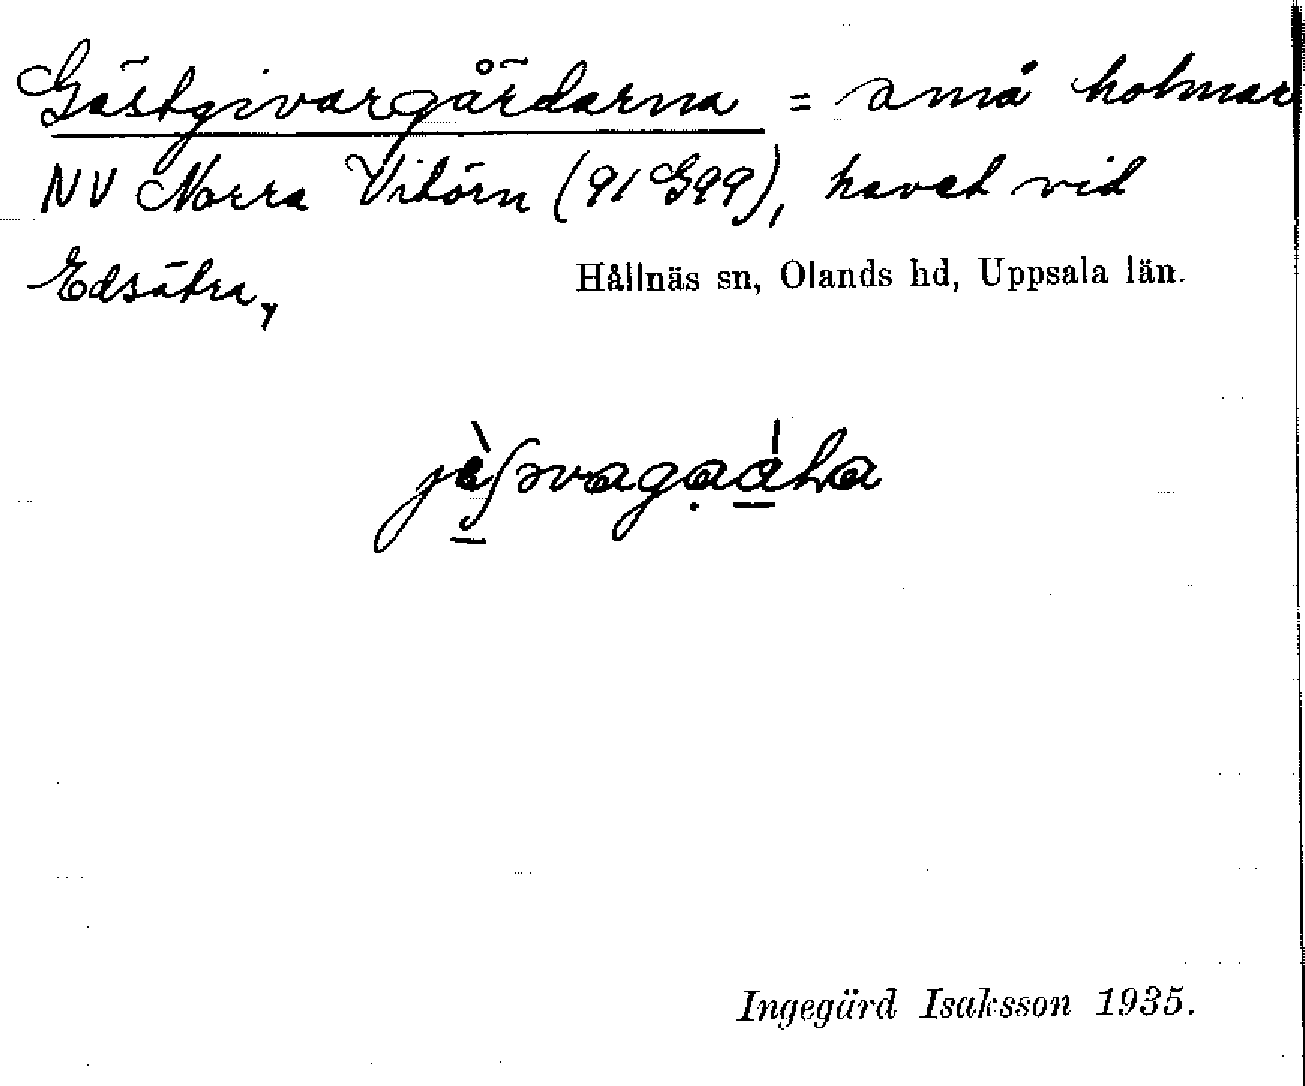 Gästgivargårdarna = små holmar
NV Norra Vitörn (91 G99), havet vid
Edsätra,
Hållnäs sn, Olands hd, Uppsala län.
Ingegärd Isaksson 1935.